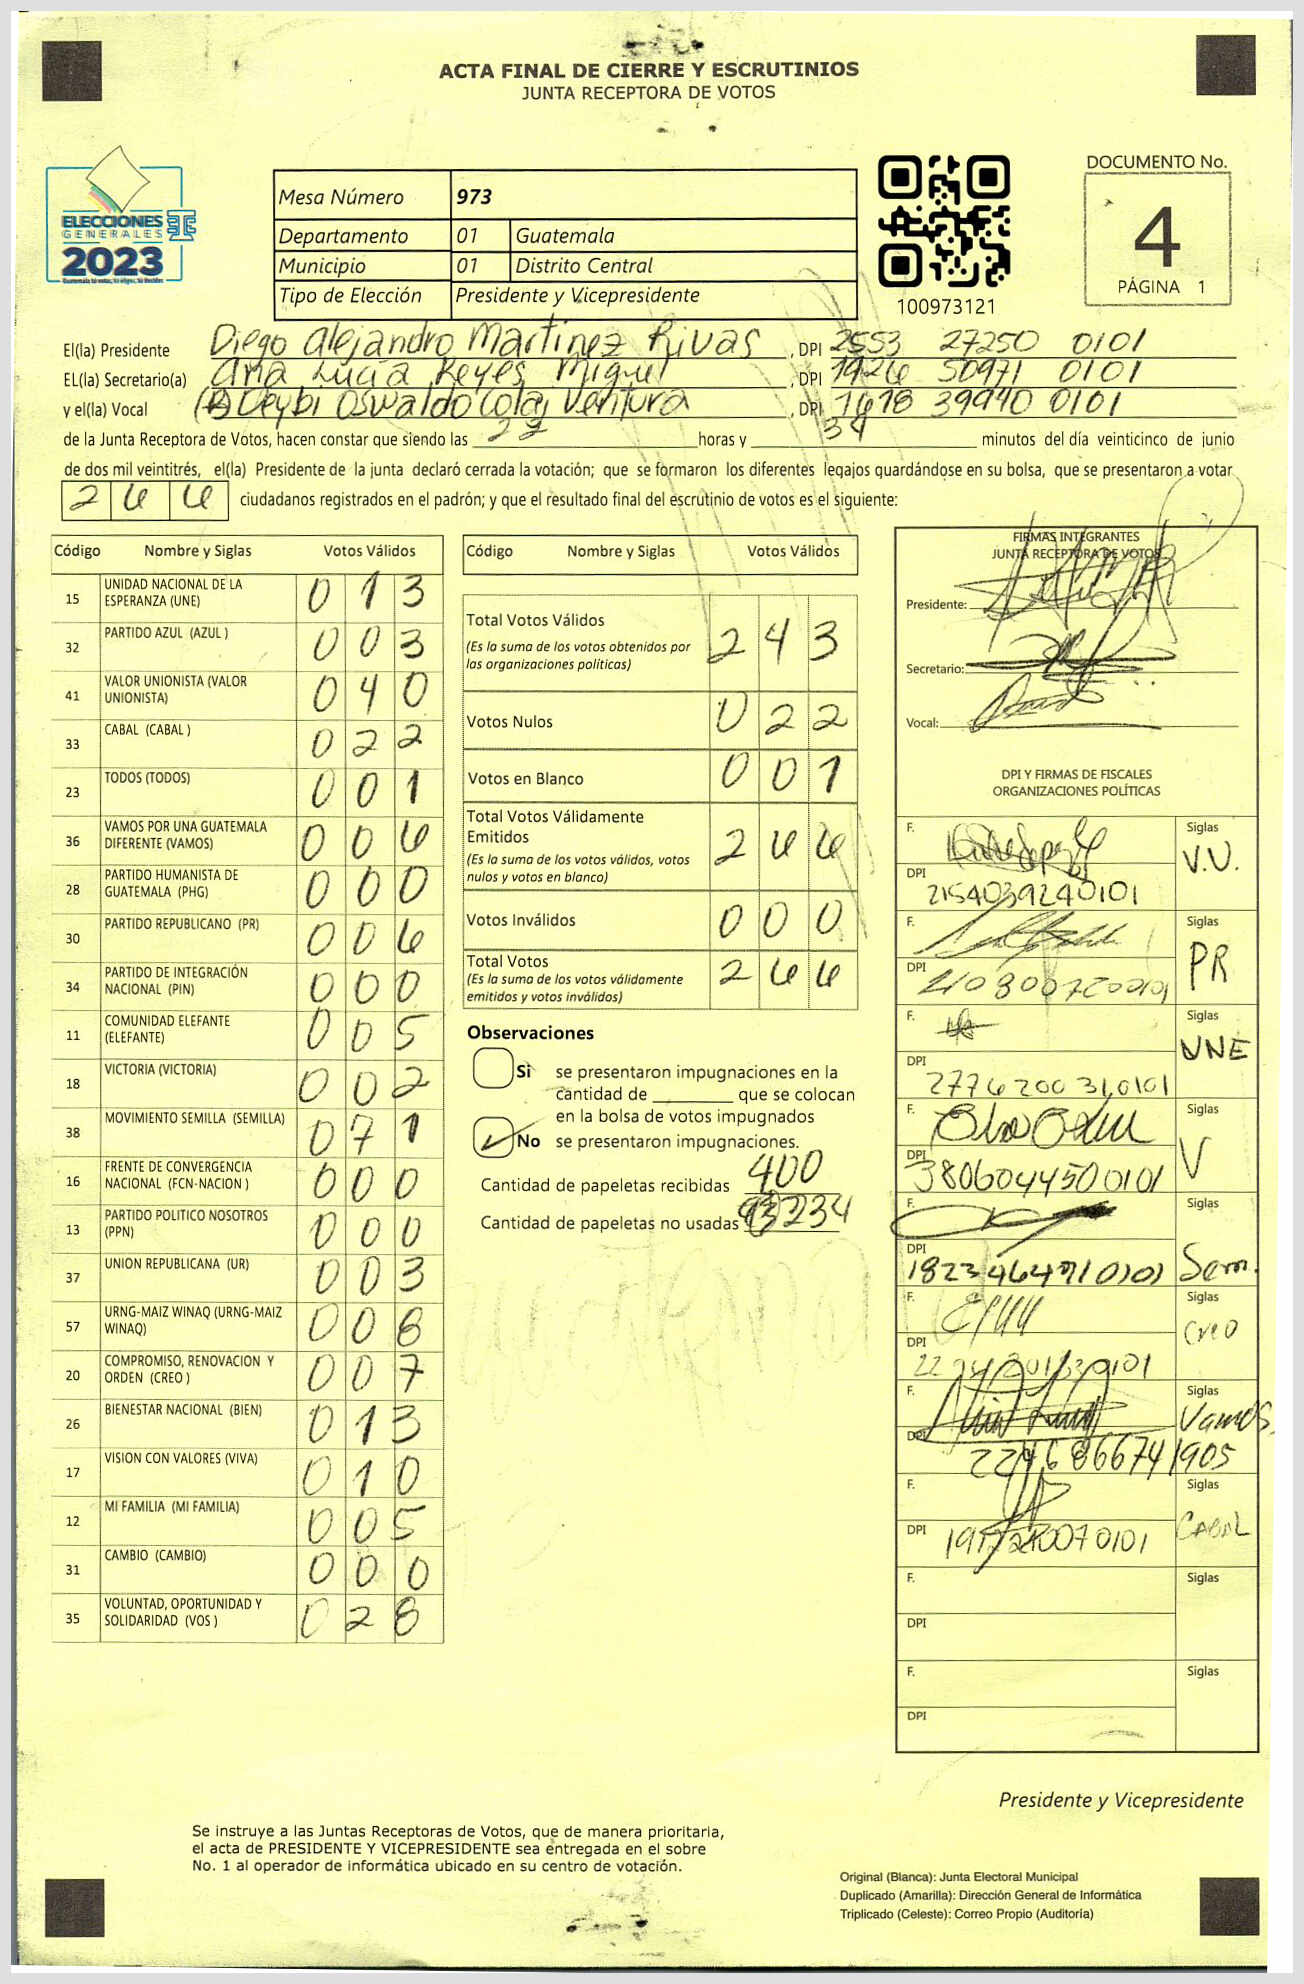 ACTA FINAL DE CIERRE Y ESCRUTINIOS
JUNTA RECEPTORA DE VOTOS
ELECCIONES
GENERALES
2023
Mesa Número 973
Departamento 01 Guatemala
Municipio 01 Distrito Central
Tipo de Elección Presidente y Vicepresidente
100973121
DOCUMENTO No.
4
PÁGINA 1
El(la) Presidente Diego Alejandro Martinez Rivas, DPI 2553 27250 0101
EL(la) Secretario(a) Ana Lucia Reyes Miguel, DPI 1926 50971 0101
y el(la) Vocal Deybi Oswaldo Colaj Ventura, DPI 1618 39940 0101
de la Junta Receptora de Votos, hacen constar que siendo las 22 horas y 34 minutos del día veinticinco de junio
de dos mil veintitrés, el(la) Presidente de la junta declaró cerrada la votación; que se formaron los diferentes legajos guardándose en su bolsa, que se presentaron a votar
266 ciudadanos registrados en el padrón; y que el resultado final del escrutinio de votos es el siguiente:
Código Nombre y Siglas Votos Válidos
15 UNIDAD NACIONAL DE LA ESPERANZA (UNE) 013
32 PARTIDO AZUL (AZUL ) 003
41 VALOR UNIONISTA (VALOR UNIONISTA) 040
33 CABAL (CABAL ) 022
23 TODOS (TODOS) 001
36 VAMOS POR UNA GUATEMALA DIFERENTE (VAMOS) 006
28 PARTIDO HUMANISTA DE GUATEMALA (PHG) 000
30 PARTIDO REPUBLICANO (PR) 006
34 PARTIDO DE INTEGRACIÓN NACIONAL (PIN) 000
11 COMUNIDAD ELEFANTE (ELEFANTE) 005
18 VICTORIA (VICTORIA) 002
38 MOVIMIENTO SEMILLA (SEMILLA) 071
16 FRENTE DE CONVERGENCIA NACIONAL (FCN-NACION ) 000
13 PARTIDO POLITICO NOSOTROS (PPN) 000
37 UNION REPUBLICANA (UR) 003
57 URNG-MAIZ WINAQ (URNG-MAIZ WINAQ) 008
20 COMPROMISO, RENOVACION Y ORDEN (CREO ) 007
26 BIENESTAR NACIONAL (BIEN) 013
17 VISION CON VALORES (VIVA) 010
12 MI FAMILIA (MI FAMILIA) 005
31 CAMBIO (CAMBIO) 000
35 VOLUNTAD, OPORTUNIDAD Y SOLIDARIDAD (VOS ) 028
Código Nombre y Siglas Votos Válidos
Total Votos Válidos 243
(Es la suma de los votos obtenidos por
las organizaciones políticas)
Votos Nulos 022
Votos en Blanco 001
Total Votos Válidamente
Emitidos 266
(Es la suma de los votos válidos, votos
nulos y votos en blanco)
Votos Inválidos 000
Total Votos 266
(Es la suma de los votos válidamente
emitidos y votos inválidos)
Observaciones
Sì se presentaron impugnaciones en la
cantidad de ________ que se colocan
en la bolsa de votos impugnados
No se presentaron impugnaciones.
Cantidad de papeletas recibidas 400
Cantidad de papeletas no usadas 234
FIRMAS INTEGRANTES
JUNTA RECEPTORA DE VOTOS
Presidente:
Secretario:
Vocal:
DPI Y FIRMAS DE FISCALES
ORGANIZACIONES POLÍTICAS
F. Siglas V.U.
DPI 2154039240101
F. Siglas PR
DPI
F. Siglas UNE
DPI 2776200310101
F. Siglas V
DPI 3806044500101
F. Siglas Sem.
DPI
F. Siglas Creo
DPI
F. Siglas Vamos
DPI 2246866741905
F. Siglas CABAL
DPI
F. Siglas
DPI
F. Siglas
DPI
Presidente y Vicepresidente
Se instruye a las Juntas Receptoras de Votos, que de manera prioritaria,
el acta de PRESIDENTE Y VICEPRESIDENTE sea entregada en el sobre
No. 1 al operador de informática ubicado en su centro de votación.
Original (Blanca): Junta Electoral Municipal
Duplicado (Amarilla): Dirección General de Informática
Triplicado (Celeste): Correo Propio (Auditoría)